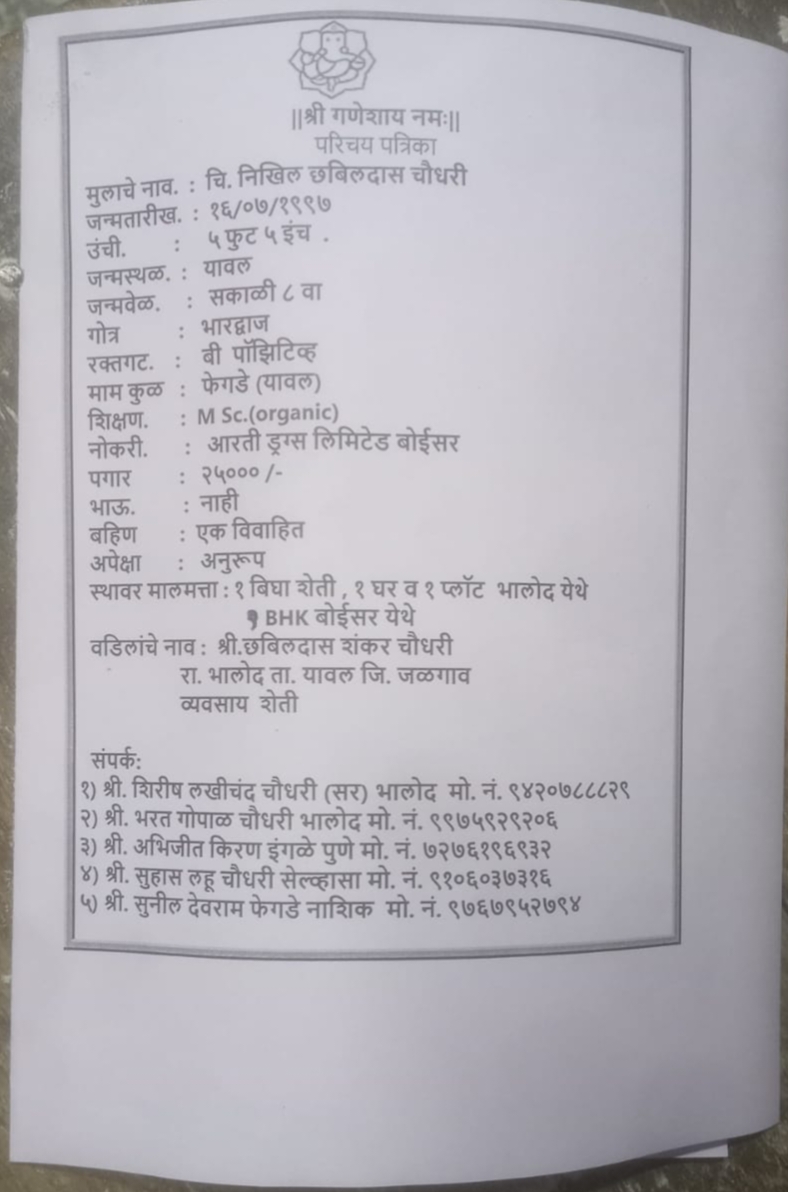 ||श्री गणेशाय नमः||
परिचय पत्रिका
मुलाचे नाव. : चि. निखिल छबिलदास चौधरी
जन्मतारीख. : १६/०७/१९९७
उंची. : ५ फुट ५ इंच .
जन्मस्थळ. : यावल
जन्मवेळ. : सकाळी ८ वा
गोत्र : भारद्वाज
रक्तगट. : बी पॉझिटिव्ह
माम कुळ : फेगडे (यावल)
शिक्षण. : M Sc.(organic)
नोकरी. : आरती ड्रग्स लिमिटेड बोईसर
पगार : २५००० /-
भाऊ. : नाही
बहिण : एक विवाहित
अपेक्षा : अनुरूप
स्थावर मालमत्ता : १ बिघा शेती , १ घर व १ प्लॉट भालोद येथे
१ BHK बोईसर येथे
वडिलांचे नाव : श्री.छबिलदास शंकर चौधरी
रा. भालोद ता. यावल जि. जळगाव
व्यवसाय शेती
संपर्क:
१) श्री. शिरीष लखीचंद चौधरी (सर) भालोद मो. नं. ९४२०७८८८२९
२) श्री. भरत गोपाळ चौधरी भालोद मो. नं. ९९७५९२९२०६
३) श्री. अभिजीत किरण इंगळे पुणे मो. नं. ७२७६१९६९३२
४) श्री. सुहास लहू चौधरी सेल्व्हासा मो. नं. ९१०६०३७३१६
५) श्री. सुनील देवराम फेगडे नाशिक मो. नं. ९७६७९५२७९४